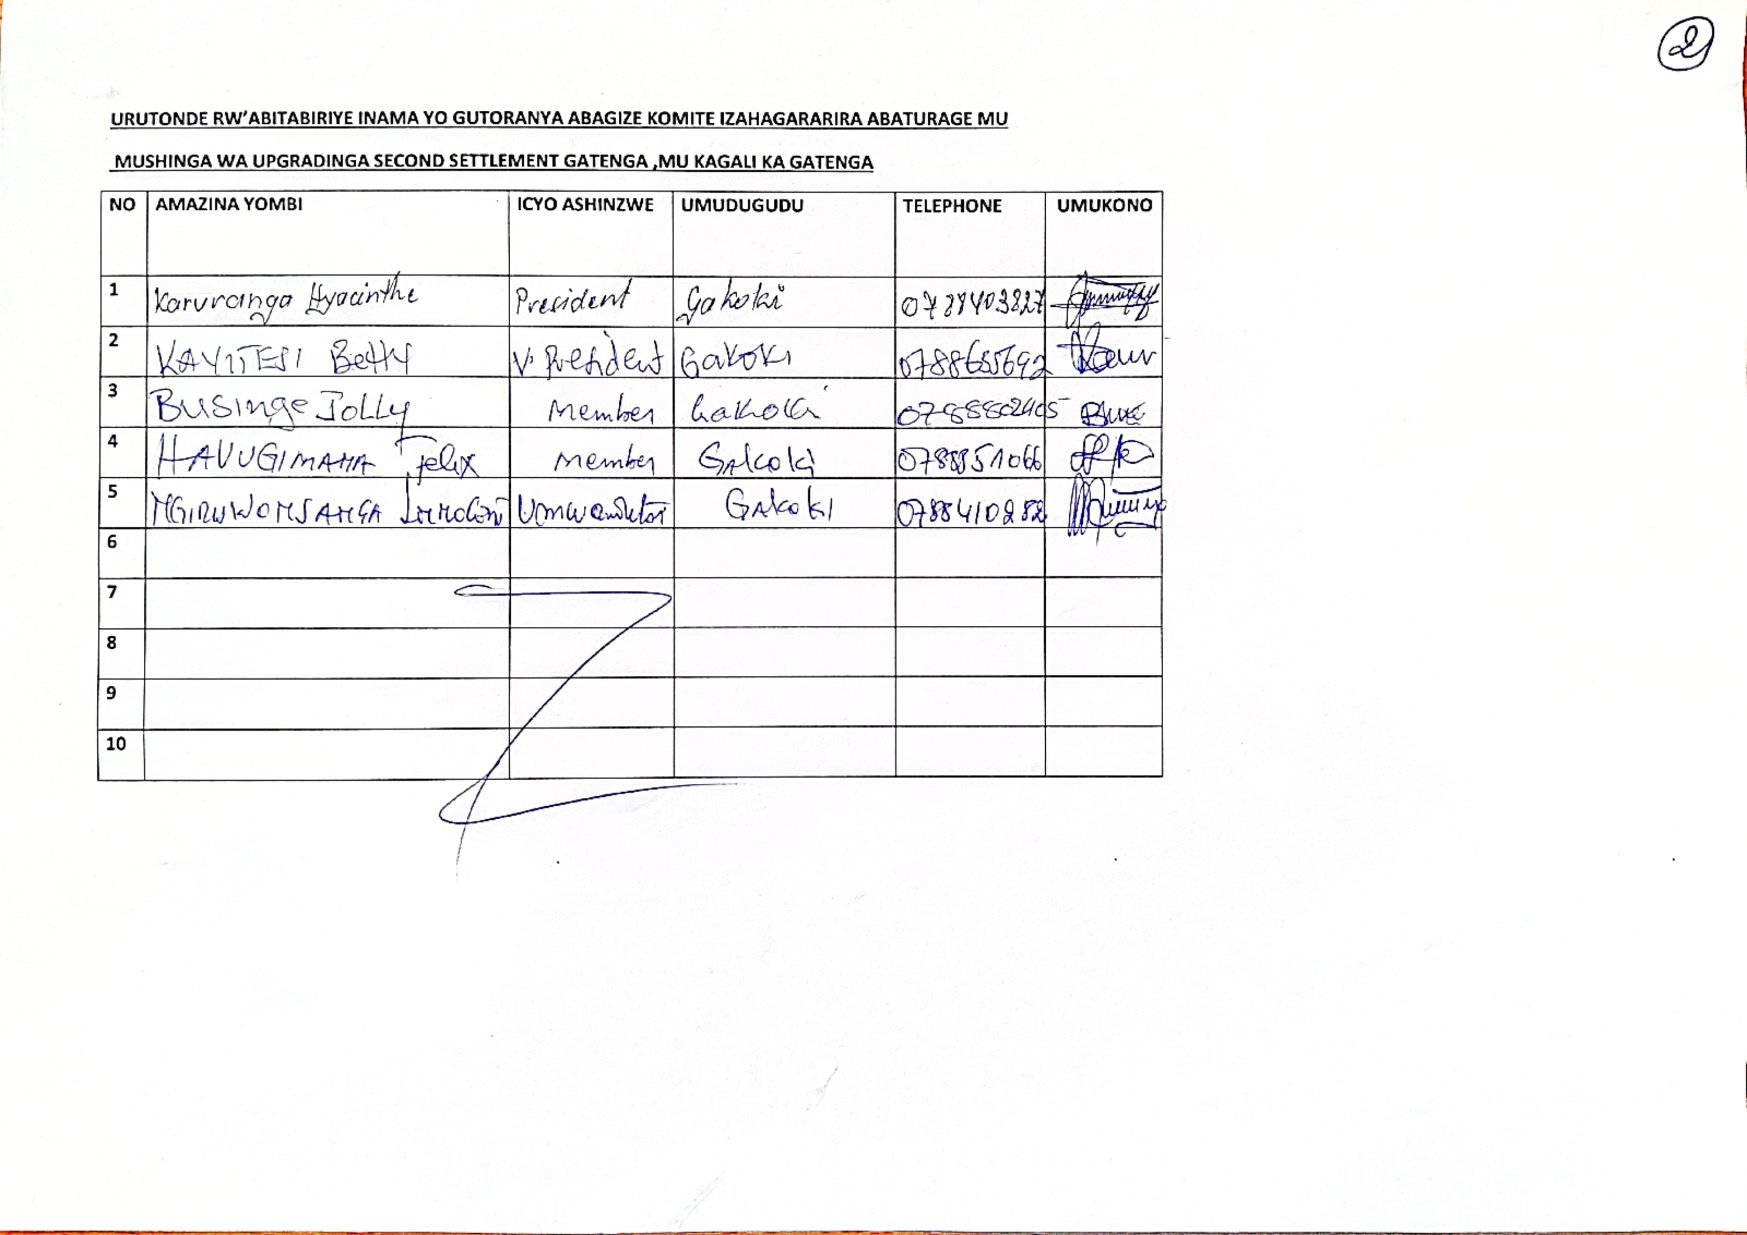 2
URUTONDE RW'ABITABIRIYE INAMA YO GUTORANYA ABAGIZE KOMITE IZAHAGARARIRA ABATURAGE MU
MUSHINGA WA UPGRADINGA SECOND SETTLEMENT GATENGA ,MU KAGALI KA GATENGA
NO AMAZINA YOMBI ICYO ASHINZWE UMUDUGUDU TELEPHONE UMUKONO
1 Karuranga Hyacinthe President Gakoki
2 KAYITESI Betty V. President Gakoki
3 Businge Jolly Member Gakoki
4 HAVUGIMANA Felix Member Gakoki
5 Gakoki 0788410282
6
7
8
9
10